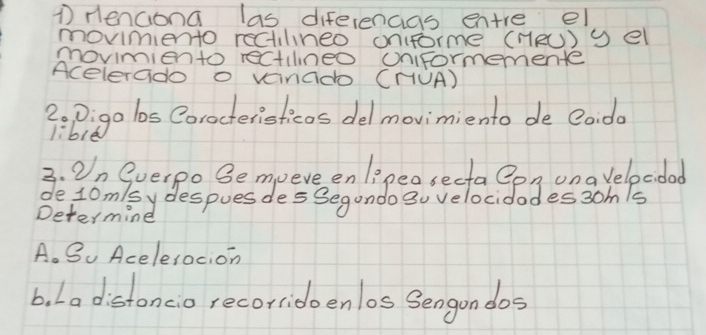 1) Menciona las diferencias entre el
movimiento rectilineo uniforme (MRU) y el
movimiento rectilineo uniformemente
Acelerado o variado (MUA)
2. Diga los Coracteristicas del movimiento de Caida
libre
3. Un Cuerpo Se mueve en linea recta Con una velocidad
de 10m/s y despues de 5 Segundo su velocidad es 30m/s
Determine
A. Su Aceleracion
b. La distancia recorrido en los Sengundos